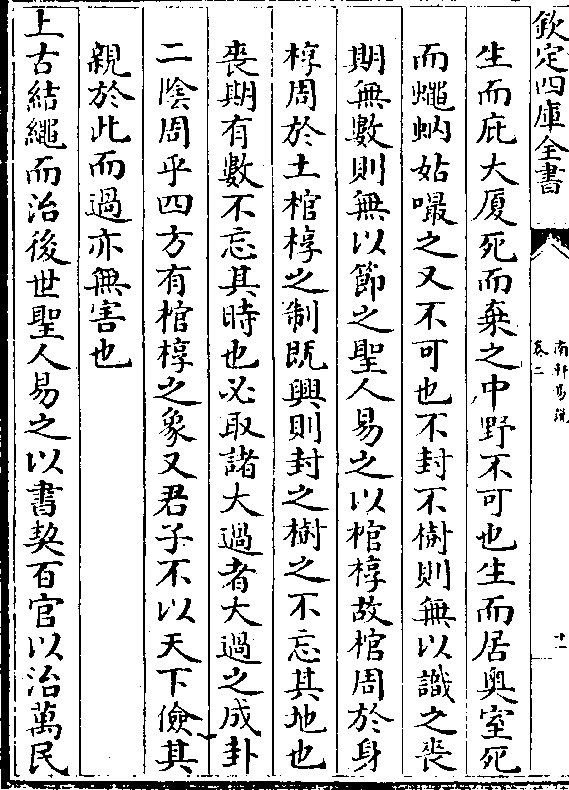 欽定四庫全書
南軒易説
卷二
十一
生而庇大厦死而棄之中野不可也生而居奥室死
而蠅蚋姑嘬之又不可也不封不樹則無以識之喪
期無數則無以節之聖人易之以棺椁故棺周於身
椁周於土棺椁之制既興則封之樹之不忘其地也
喪期有數不忘其時也必取諸大過者大過之成卦
二陰周乎四方有棺椁之象又君子不以天下儉其
親於此而過亦無害也
上古結繩而治後世聖人易之以書契百官以治萬民